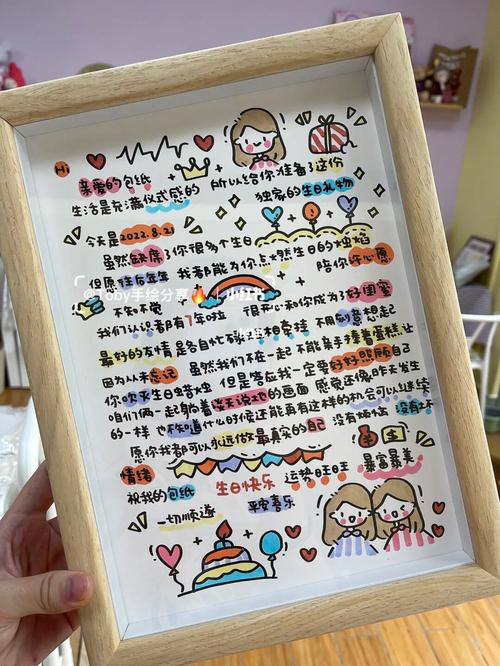 Hi
亲爱的包纸
生活是充满仪式感的 所以给你准备了这份
独家的生日礼物
今天是2022.8.21
虽然缺席了你很多个生日
但愿往后年年 我都能为你点燃生日的烛焰
陪你许心愿
不知不觉
我们认识都有7年啦 很开心和你成为了好闺蜜
最好的友情是各自忙碌 互相牵挂 不用刻意想起
因为从未忘记 虽然我们不在一起 不能亲手捧着蛋糕让
你吹灭生日蜡烛 但是答应我一定要好好照顾自己
咱们俩一起躺着谈天说地的画面 感觉还像昨天发生
的一样 也不知道什么时候还能再有这样的机会可以继续
愿你我都可以永远做最真实的自己 没有烦恼 没有
情绪
祝我的包纸 生日快乐 运势旺旺旺 暴富暴美
一切顺遂 平安喜乐
@Toby手绘分享🔥
小红书